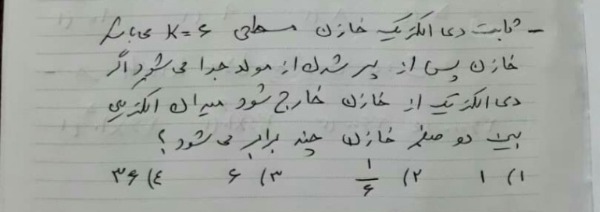 - ثابت دی الکتریک خازن مسطحی K=۶ می باشد
خازن پس از پر شدن از مولد جدا می شود اگر
دی الکتریک از خازن خارج شود میدان الکتریکی
بین دو صفحه خازن چند برابر می شود؟
۱) ۱ ۲) ۱/۶ ۳) ۶ ۴) ۳۶